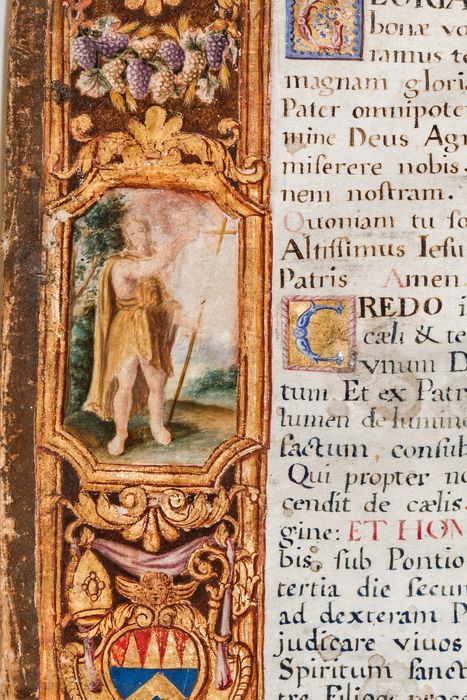 LORIA
bonæ vo
ramus te
magnam gloria
Pater omnipote
mine Deus Agn
miserere nobis.
nem nostram.
Quoniam tu so
Altissimus Iesu
Patris Amen
CREDO i
cæli & te
vnum D
tum. Et ex Patr
lumen de lumine
factum, consub
Qui propter no
cendit de cælis.
gine: ET HOM
bis, sub Pontio
tertia die secun
ad dexteram P
judicare viuos
Spiritum sanct